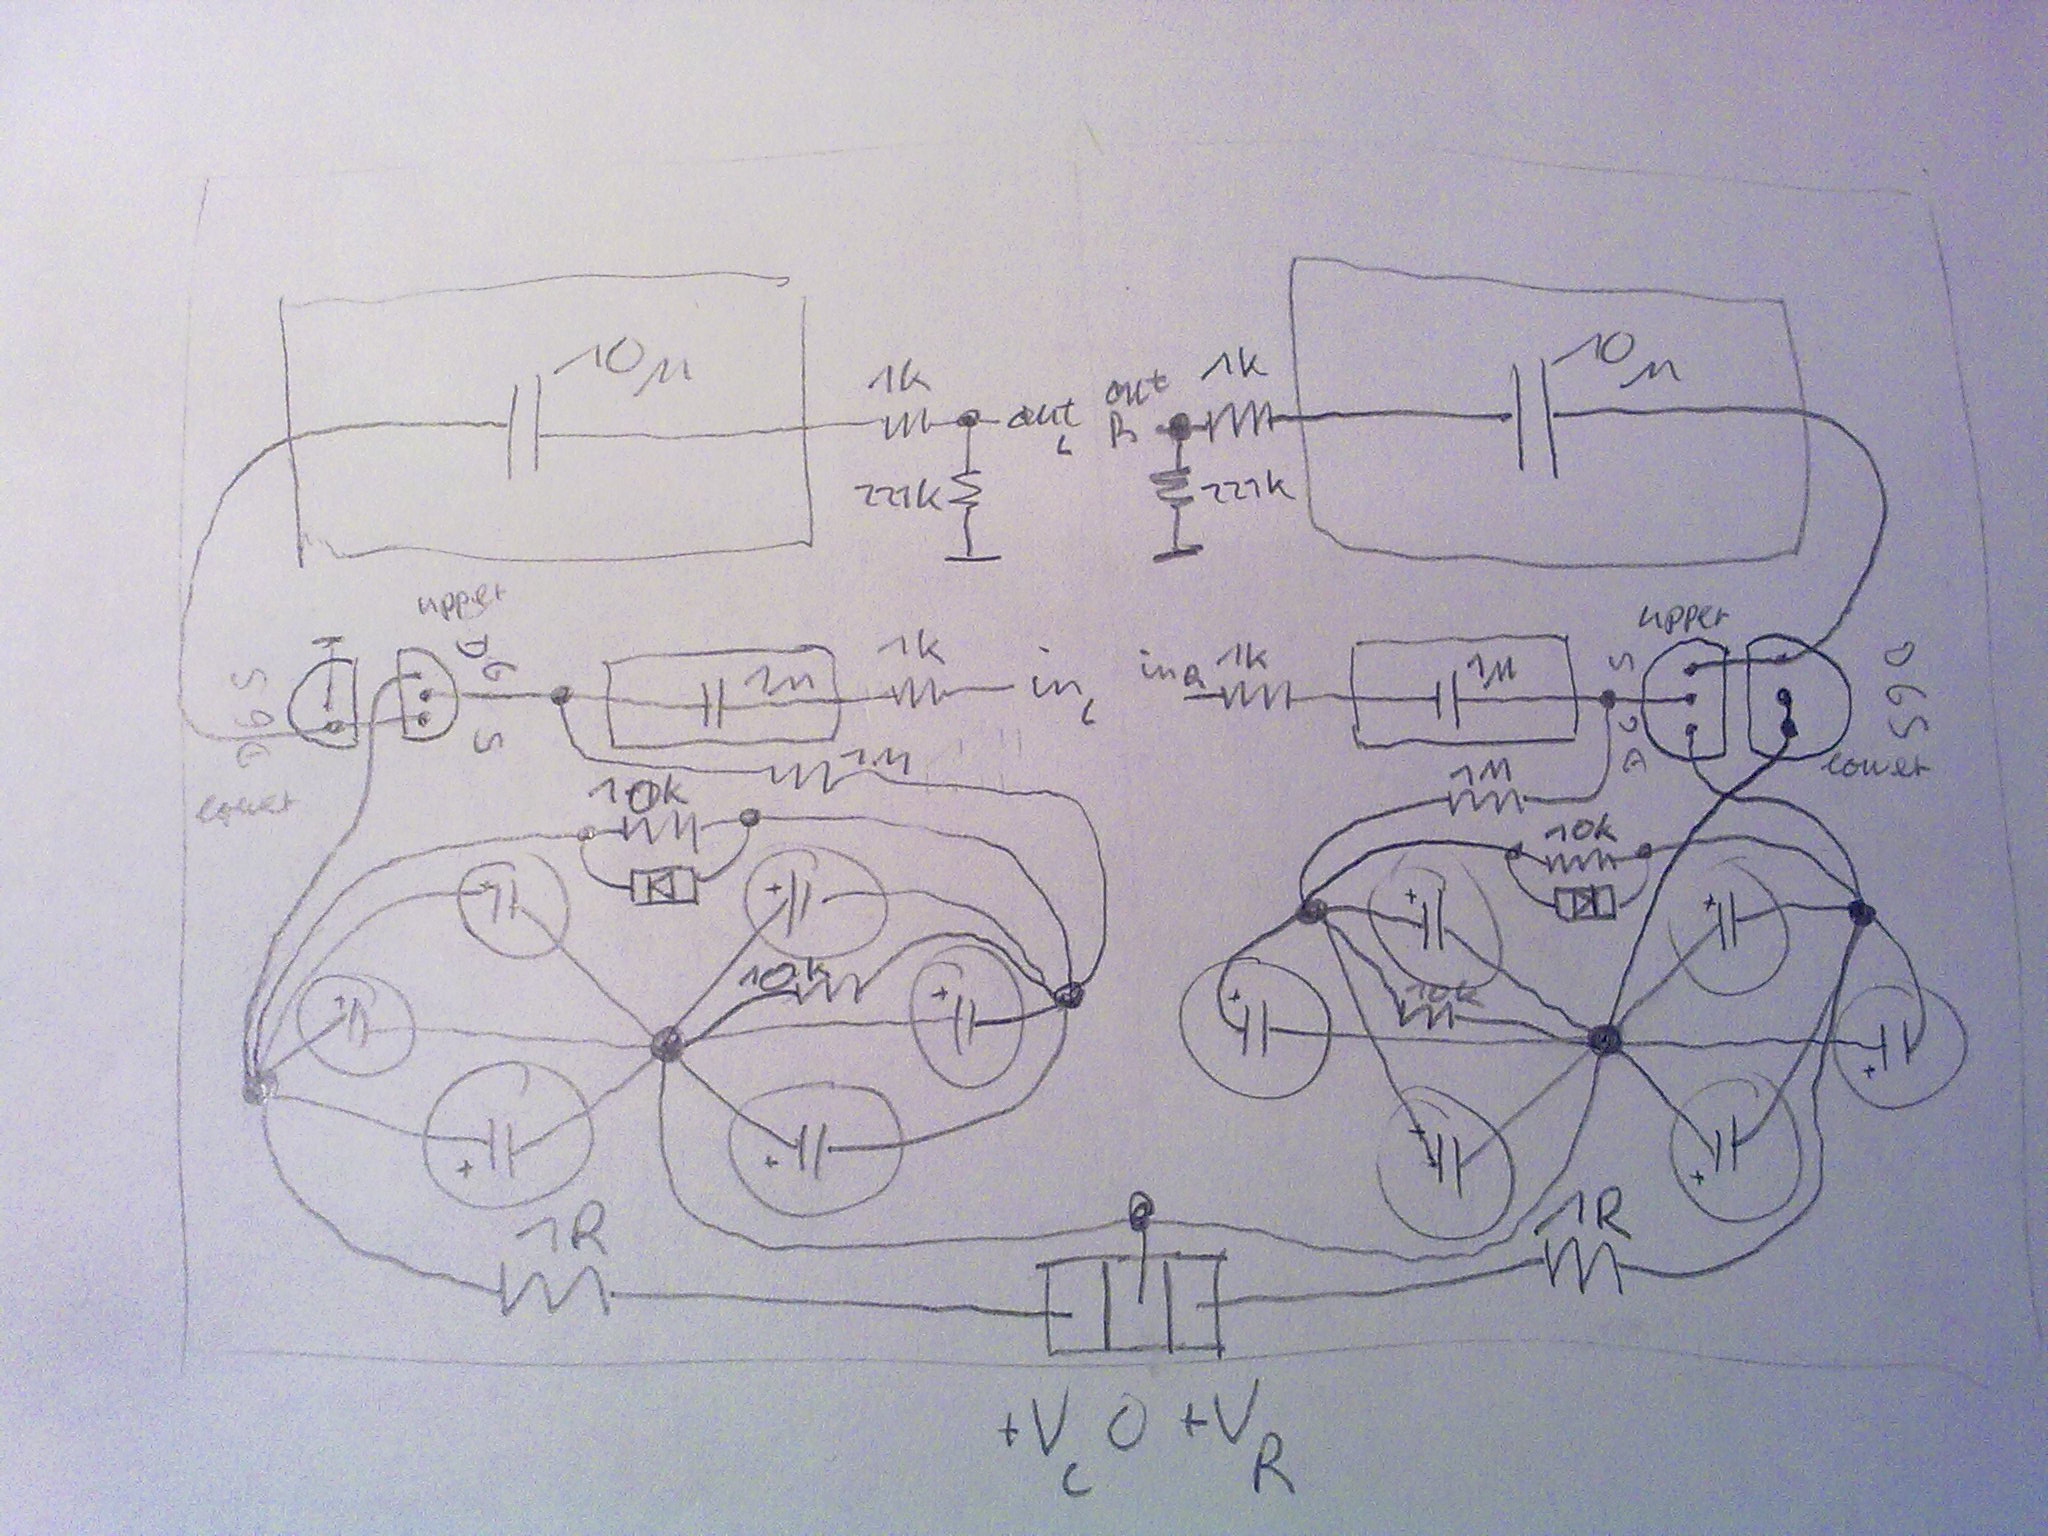 10µ
10µ
1k
out
L
out
R
1k
221k
221k
upper
D
G
S
S
G
D
lower
1µ
1k
in
L
in R
1k
1µ
upper
S
G
D
D
G
S
lower
1M
1M
10k
10k
+
+
+
+
+
+
10k
+
+
+
+
+
+
10k
1R
1R
+V L 0 +V R